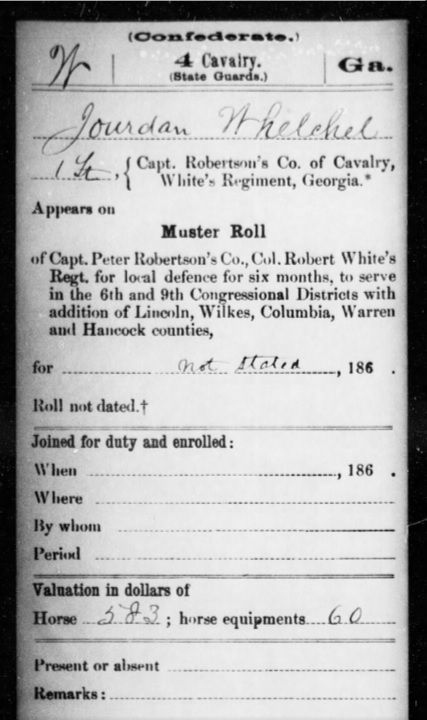 (Confederate.)
W | 4 Cavalry. (State Guards.) | Ga.
Jourdan Whelchel
1 Lt, { Capt. Robertson's Co. of Cavalry, White's Regiment, Georgia.*
Appears on
Muster Roll
of Capt. Peter Robertson's Co., Col. Robert White's
Regt. for local defence for six months, to serve
in the 6th and 9th Congressional Districts with
addition of Lincoln, Wilkes, Columbia, Warren
and Hancock counties,
for not stated, 186 .
Roll not dated.†
Joined for duty and enrolled:
When , 186 .
Where
By whom
Period
Valuation in dollars of
Horse 583; horse equipments 60
Present or absent
Remarks: